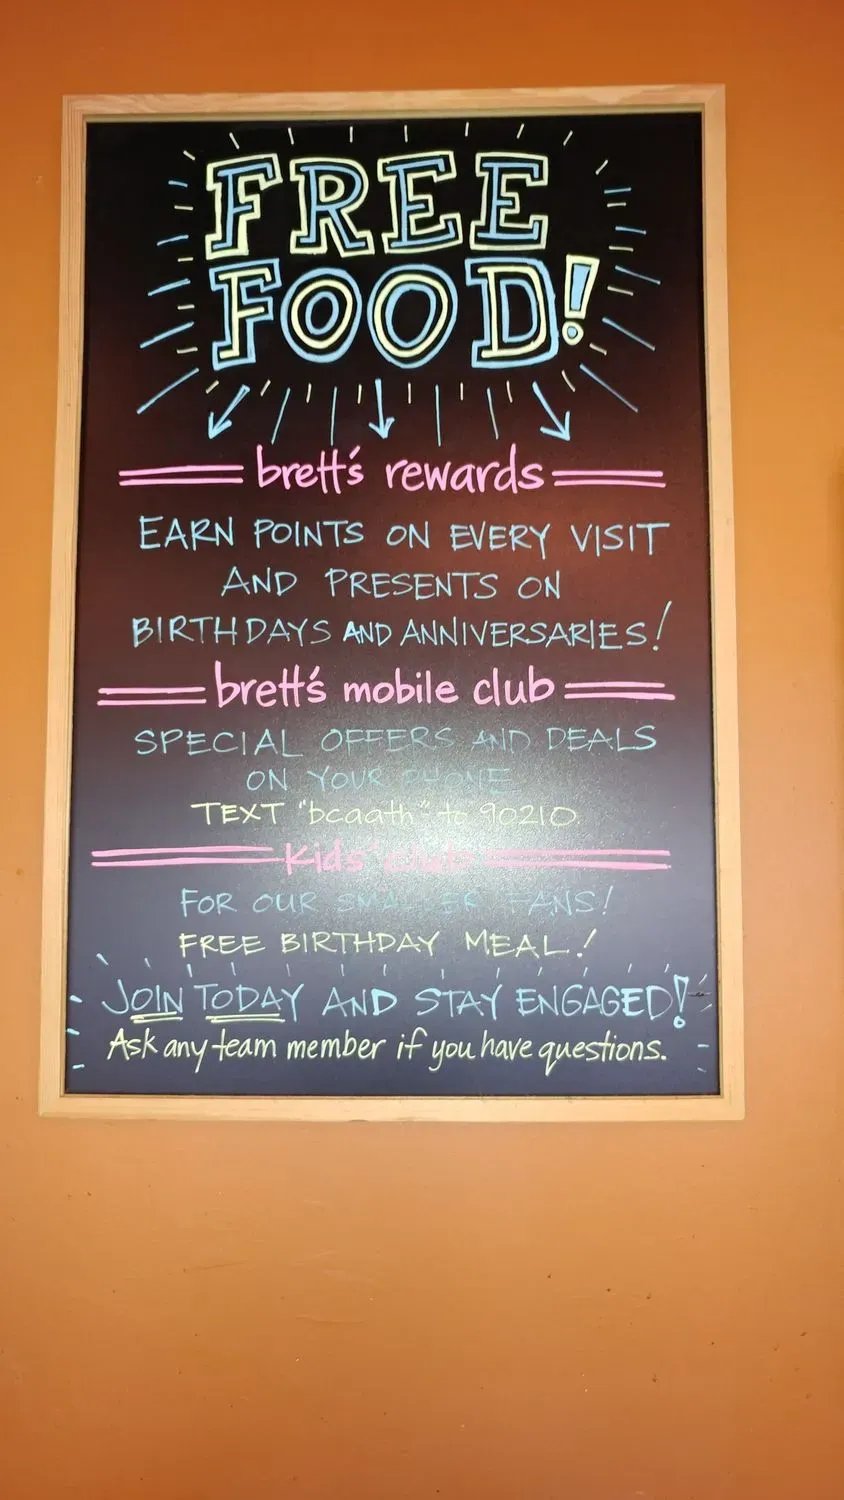 FREE
FOOD!
brett's rewards
EARN POINTS ON EVERY VISIT
AND PRESENTS ON
BIRTHDAYS AND ANNIVERSARIES!
brett's mobile club
SPECIAL OFFERS AND DEALS
ON YOUR PHONE
TEXT "bcaath" to 90210
Kids' club
FOR OUR SMALLER FANS!
FREE BIRTHDAY MEAL!
JOIN TODAY AND STAY ENGAGED!
Ask any team member if you have questions.